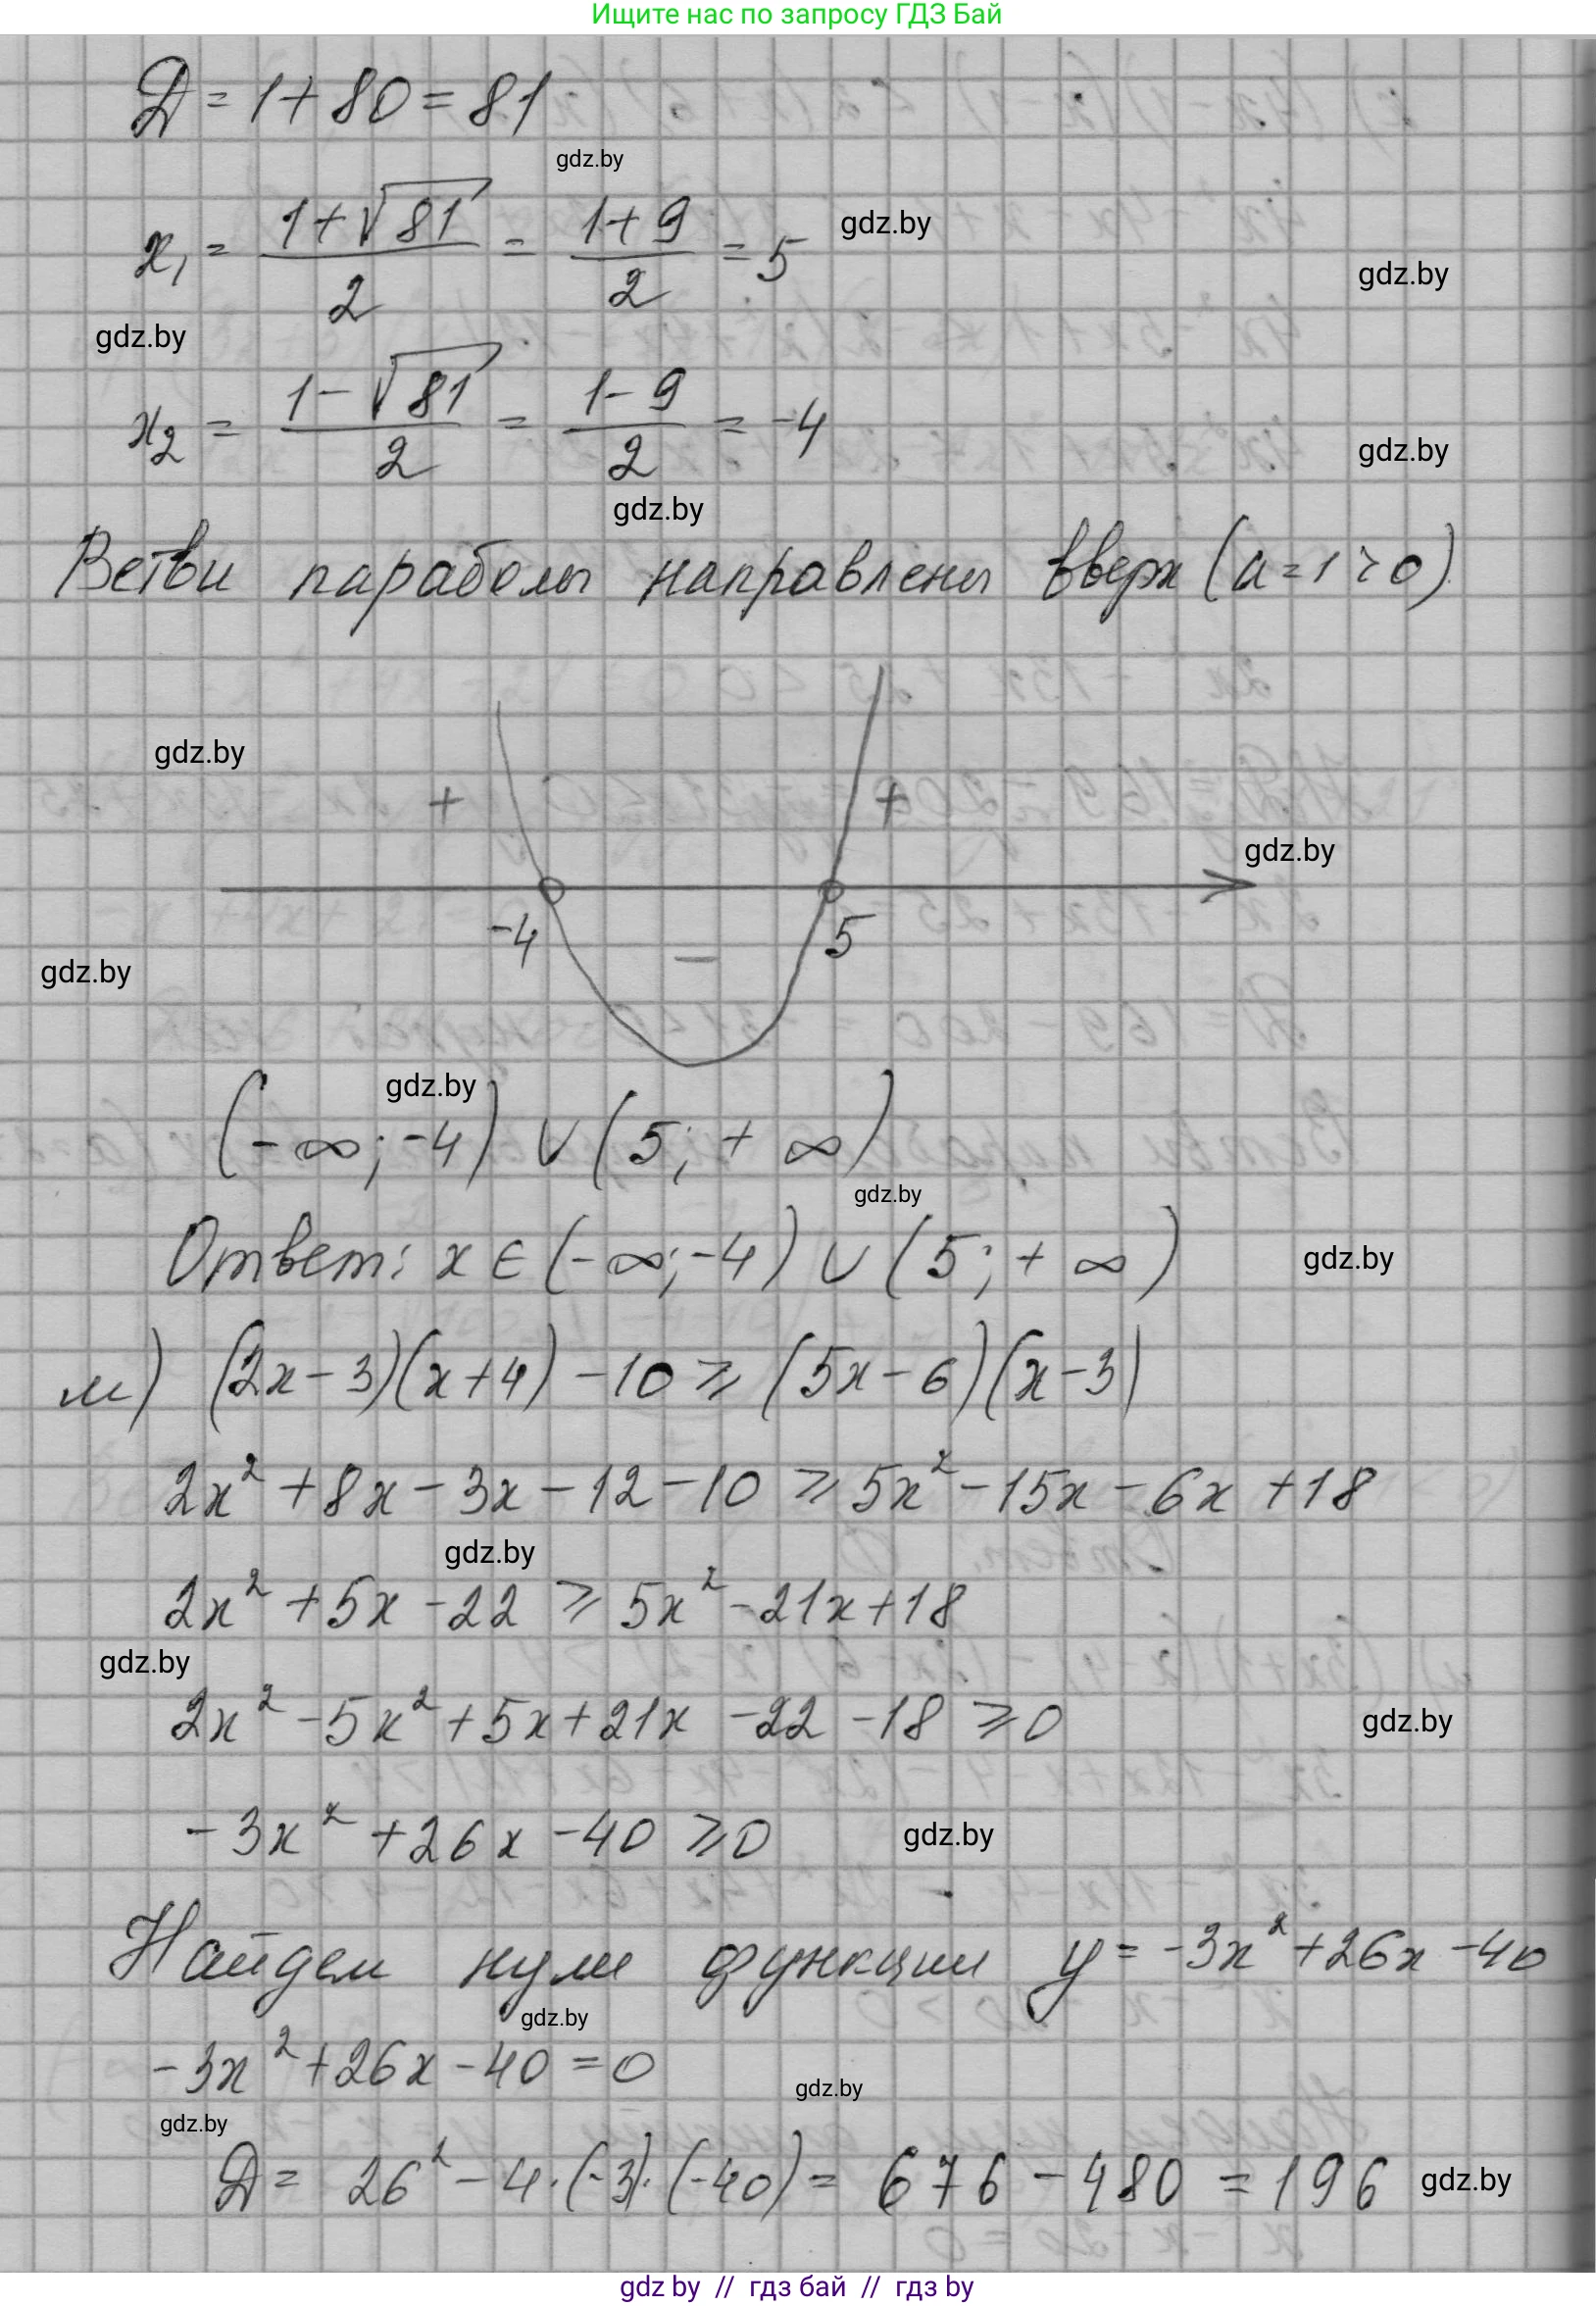 Ищите нас по запросу ГДЗ Бай
Д = 1 + 80 = 81
gdz.by
x₁ = (1+√81)/2 = (1+9)/2 = 5
gdz.by
gdz.by
gdz.by
x₂ = (1-√81)/2 = (1-9)/2 = -4
gdz.by
gdz.by
Ветви параболы направлены вверх (a=1>0)
gdz.by
+ +
gdz.by
-4 5
-
gdz.by
gdz.by
(-∞; -4) ∪ (5; +∞)
gdz.by
Ответ: x ∈ (-∞; -4) ∪ (5; +∞)
gdz.by
м) (2x-3)(x+4) -10 ≥ (5x-6)(x-3)
2x² + 8x - 3x - 12 - 10 ≥ 5x² - 15x - 6x + 18
gdz.by
2x² + 5x - 22 ≥ 5x² - 21x + 18
gdz.by
2x² - 5x² + 5x + 21x - 22 - 18 ≥ 0
gdz.by
-3x² + 26x - 40 ≥ 0
gdz.by
Найдем нули функции y = -3x² + 26x - 40
gdz.by
-3x² + 26x - 40 = 0
gdz.by
gdz.by
Д = 26² - 4·(-3)·(-40) = 676 - 480 = 196
gdz.by
gdz by // гдз бай // гдз by